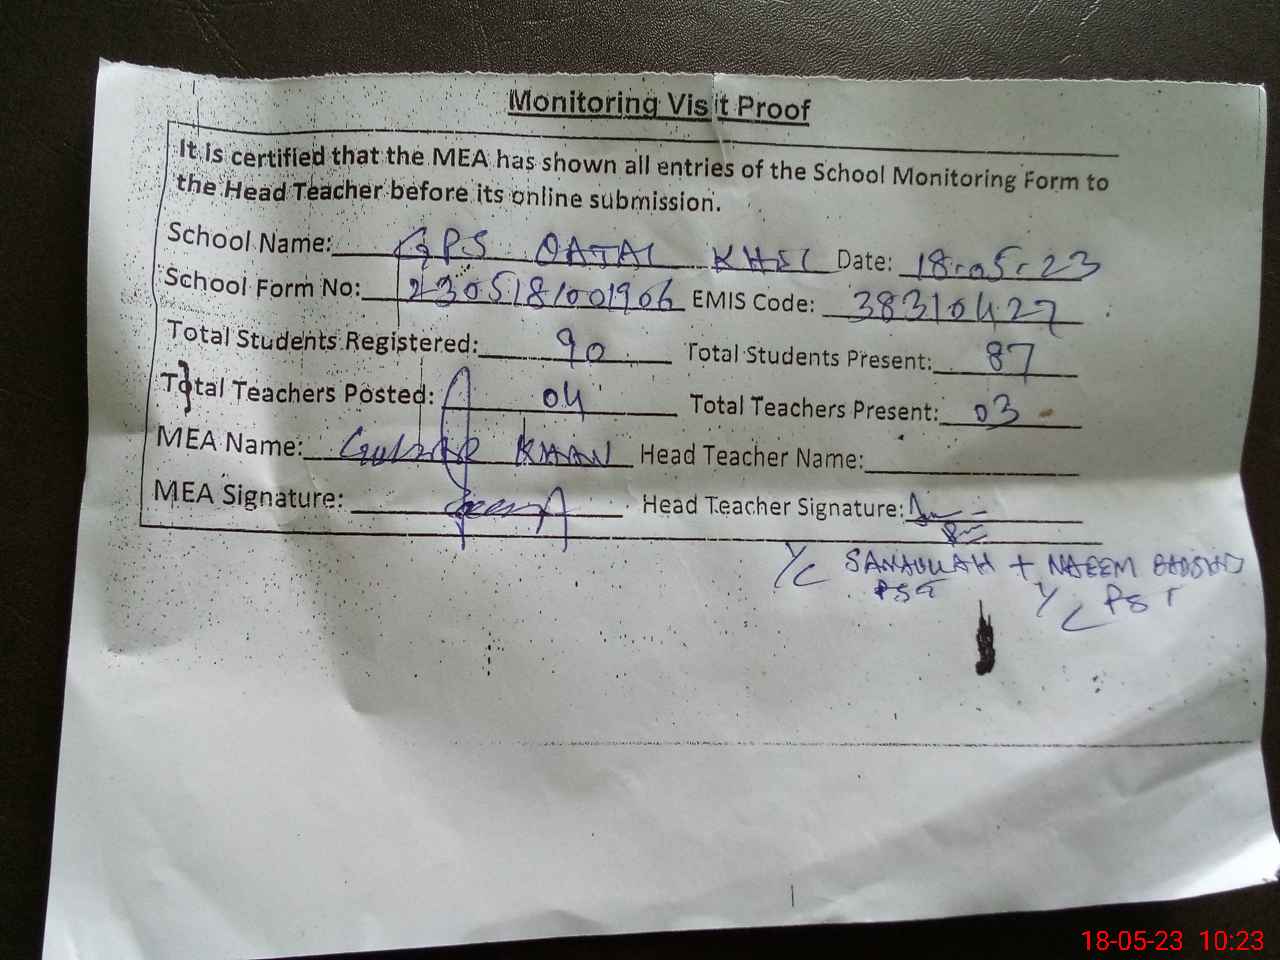 Monitoring Visit Proof
It is certified that the MEA has shown all entries of the School Monitoring Form to
the Head Teacher before its online submission.
School Name: GPS QATAL KHEL Date: 18-05-23
School Form No: 2305181001906 EMIS Code: 38310427
Total Students Registered: 90 Total Students Present: 87
Total Teachers Posted: 04 Total Teachers Present: 03
MEA Name: GULZAR KHAN Head Teacher Name:
MEA Signature: Head Teacher Signature:
Y/C SANAULLAH + NAEEM
PST Y/C PST
18-05-23 10:23